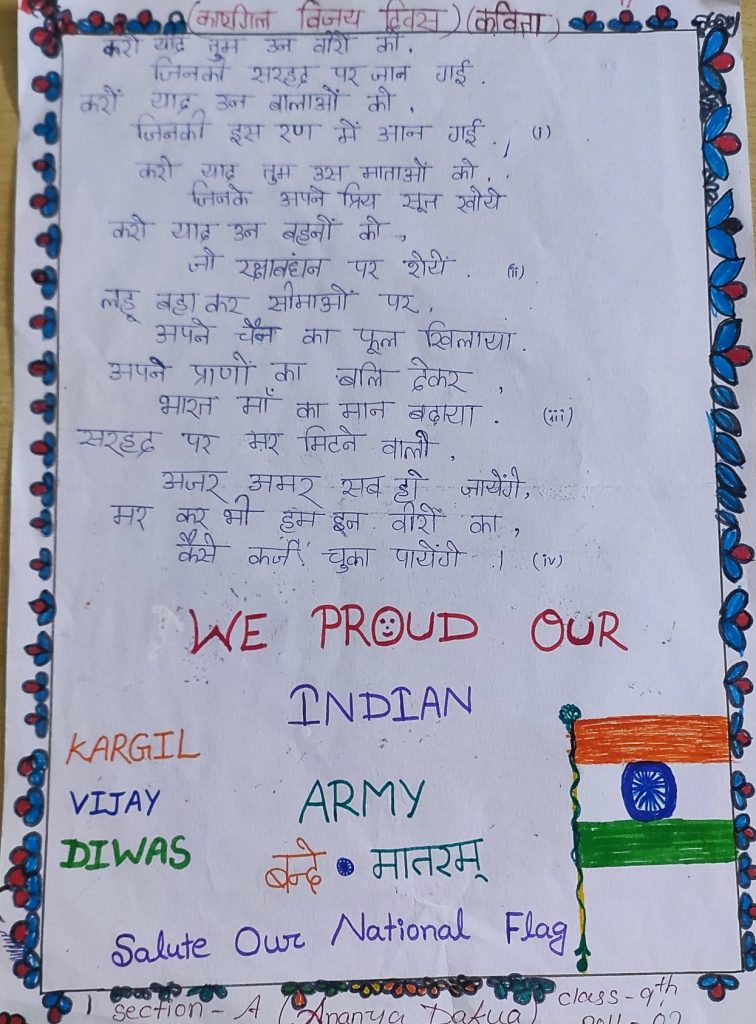 (कारगिल विजय दिवस) (कविता)
करो याद तुम उन वीरों को,
जिनकी सरहद पर जान गई.
करों याद उन बालाओं को,
जिनकी इस रण में आन गई. / (i)
करो याद तुम उस माताओं को,
जिनके अपने प्रिय सूत खोये
करो याद उन बहनों को,
जो रक्षाबंधन पर रोयें. (ii)
लहू बहा कर सीमाओं पर,
अपने चैन का फूल खिलाया.
अपने प्राणों का बलि देकर,
भारत माँ का मान बढ़ाया. (iii)
सरहद पर मर मिटने वालो,
अजर अमर सब हो जायेंगे,
मर कर भी हम इन वीरों का,
कैसे कर्ज चुका पायेंगे ।. (iv)
WE PROUD OUR
INDIAN
KARGIL
VIJAY
DIWAS
ARMY
बन्दे मातरम्
Salute Our National Flag
section - A (Ananya Dakua) class - 9th
Roll - 02